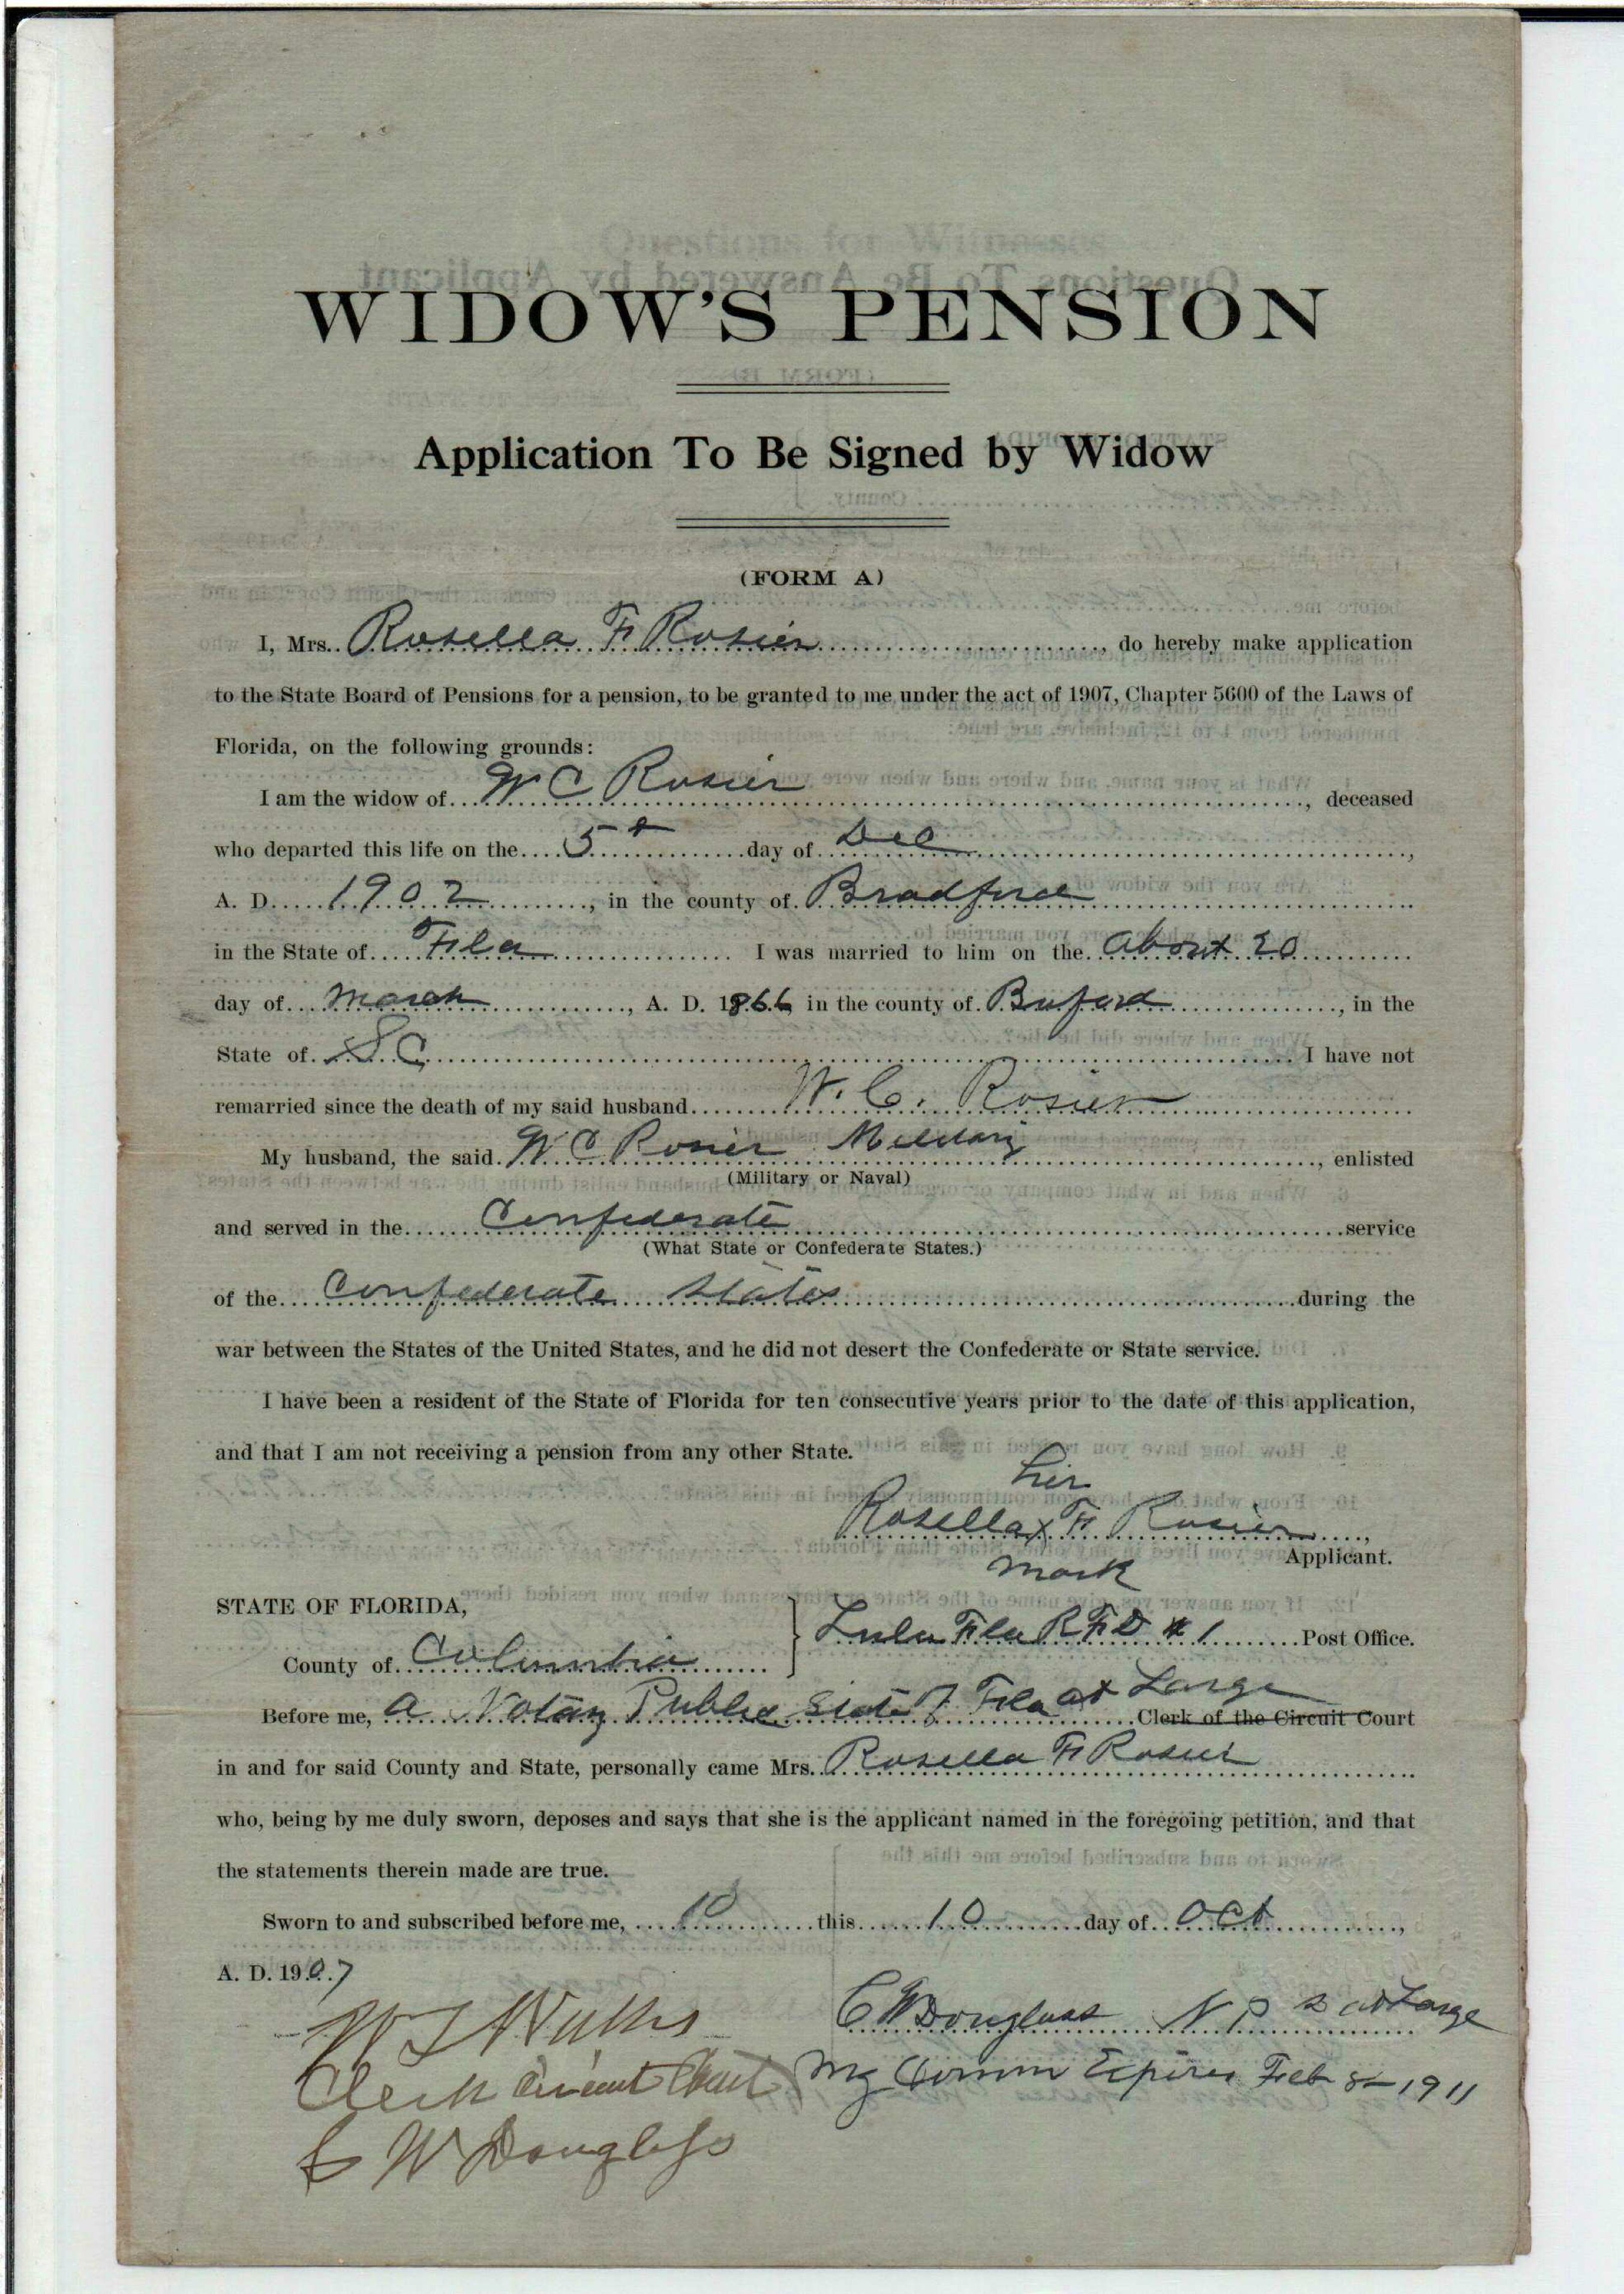 WIDOW'S PENSION
Application To Be Signed by Widow
(FORM A)
I, Mrs. Rosella F Rosier, do hereby make application
to the State Board of Pensions for a pension, to be granted to me under the act of 1907, Chapter 5600 of the Laws of
Florida, on the following grounds:
I am the widow of W C Rosier, deceased
who departed this life on the 5th day of Dec,
A. D. 1902, in the county of Bradford
in the State of Fla I was married to him on the about 20
day of March, A. D. 1866 in the county of Buford, in the
State of S C I have not
remarried since the death of my said husband W. C. Rosier
My husband, the said W C Rosier Military, enlisted
(Military or Naval)
and served in the Confederate service
(What State or Confederate States.)
of the Confederate States during the
war between the States of the United States, and he did not desert the Confederate or State service.
I have been a resident of the State of Florida for ten consecutive years prior to the date of this application,
and that I am not receiving a pension from any other State.
her
Rosella x F Rosier,
mark Applicant.
STATE OF FLORIDA,
Lulu Fla R F D # 1 Post Office.
County of Columbia
Before me, a Notary Public State of Fla at Large Clerk of the Circuit Court
in and for said County and State, personally came Mrs. Rosella F Rosier
who, being by me duly sworn, deposes and says that she is the applicant named in the foregoing petition, and that
the statements therein made are true.
Sworn to and subscribed before me, 10 this 10 day of Oct,
A. D. 1907
C W Douglass N P S at Large
My Comm Expires Feb 8 - 1911
Clerk Circuit Court
C W Douglass